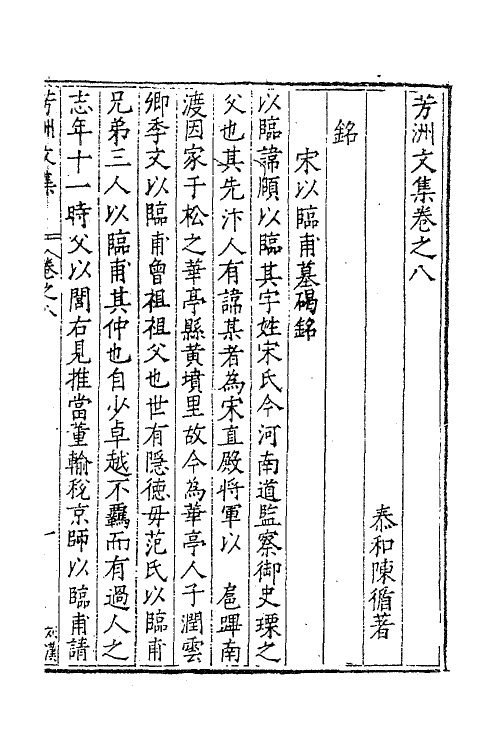 芳洲文集卷之八
泰和陳循著
銘
宋以臨甫墓碣銘
以臨諱頤以臨其字姓宋氏今河南道監察御史瑮之
父也其先汴人有諱某者為宋直殿将軍以 扈蹕南
渡因家于松之華亭縣黄墳里故今為華亭人子潤雲
卿季文以臨甫曾祖祖父也世有隠徳毋范氏以臨甫
兄弟三人以臨甫其仲也自少卓越不羈而有過人之
志年十一時父以閭右見推當董輸稅京師以臨甫請
芳洲文集 卷之八 一